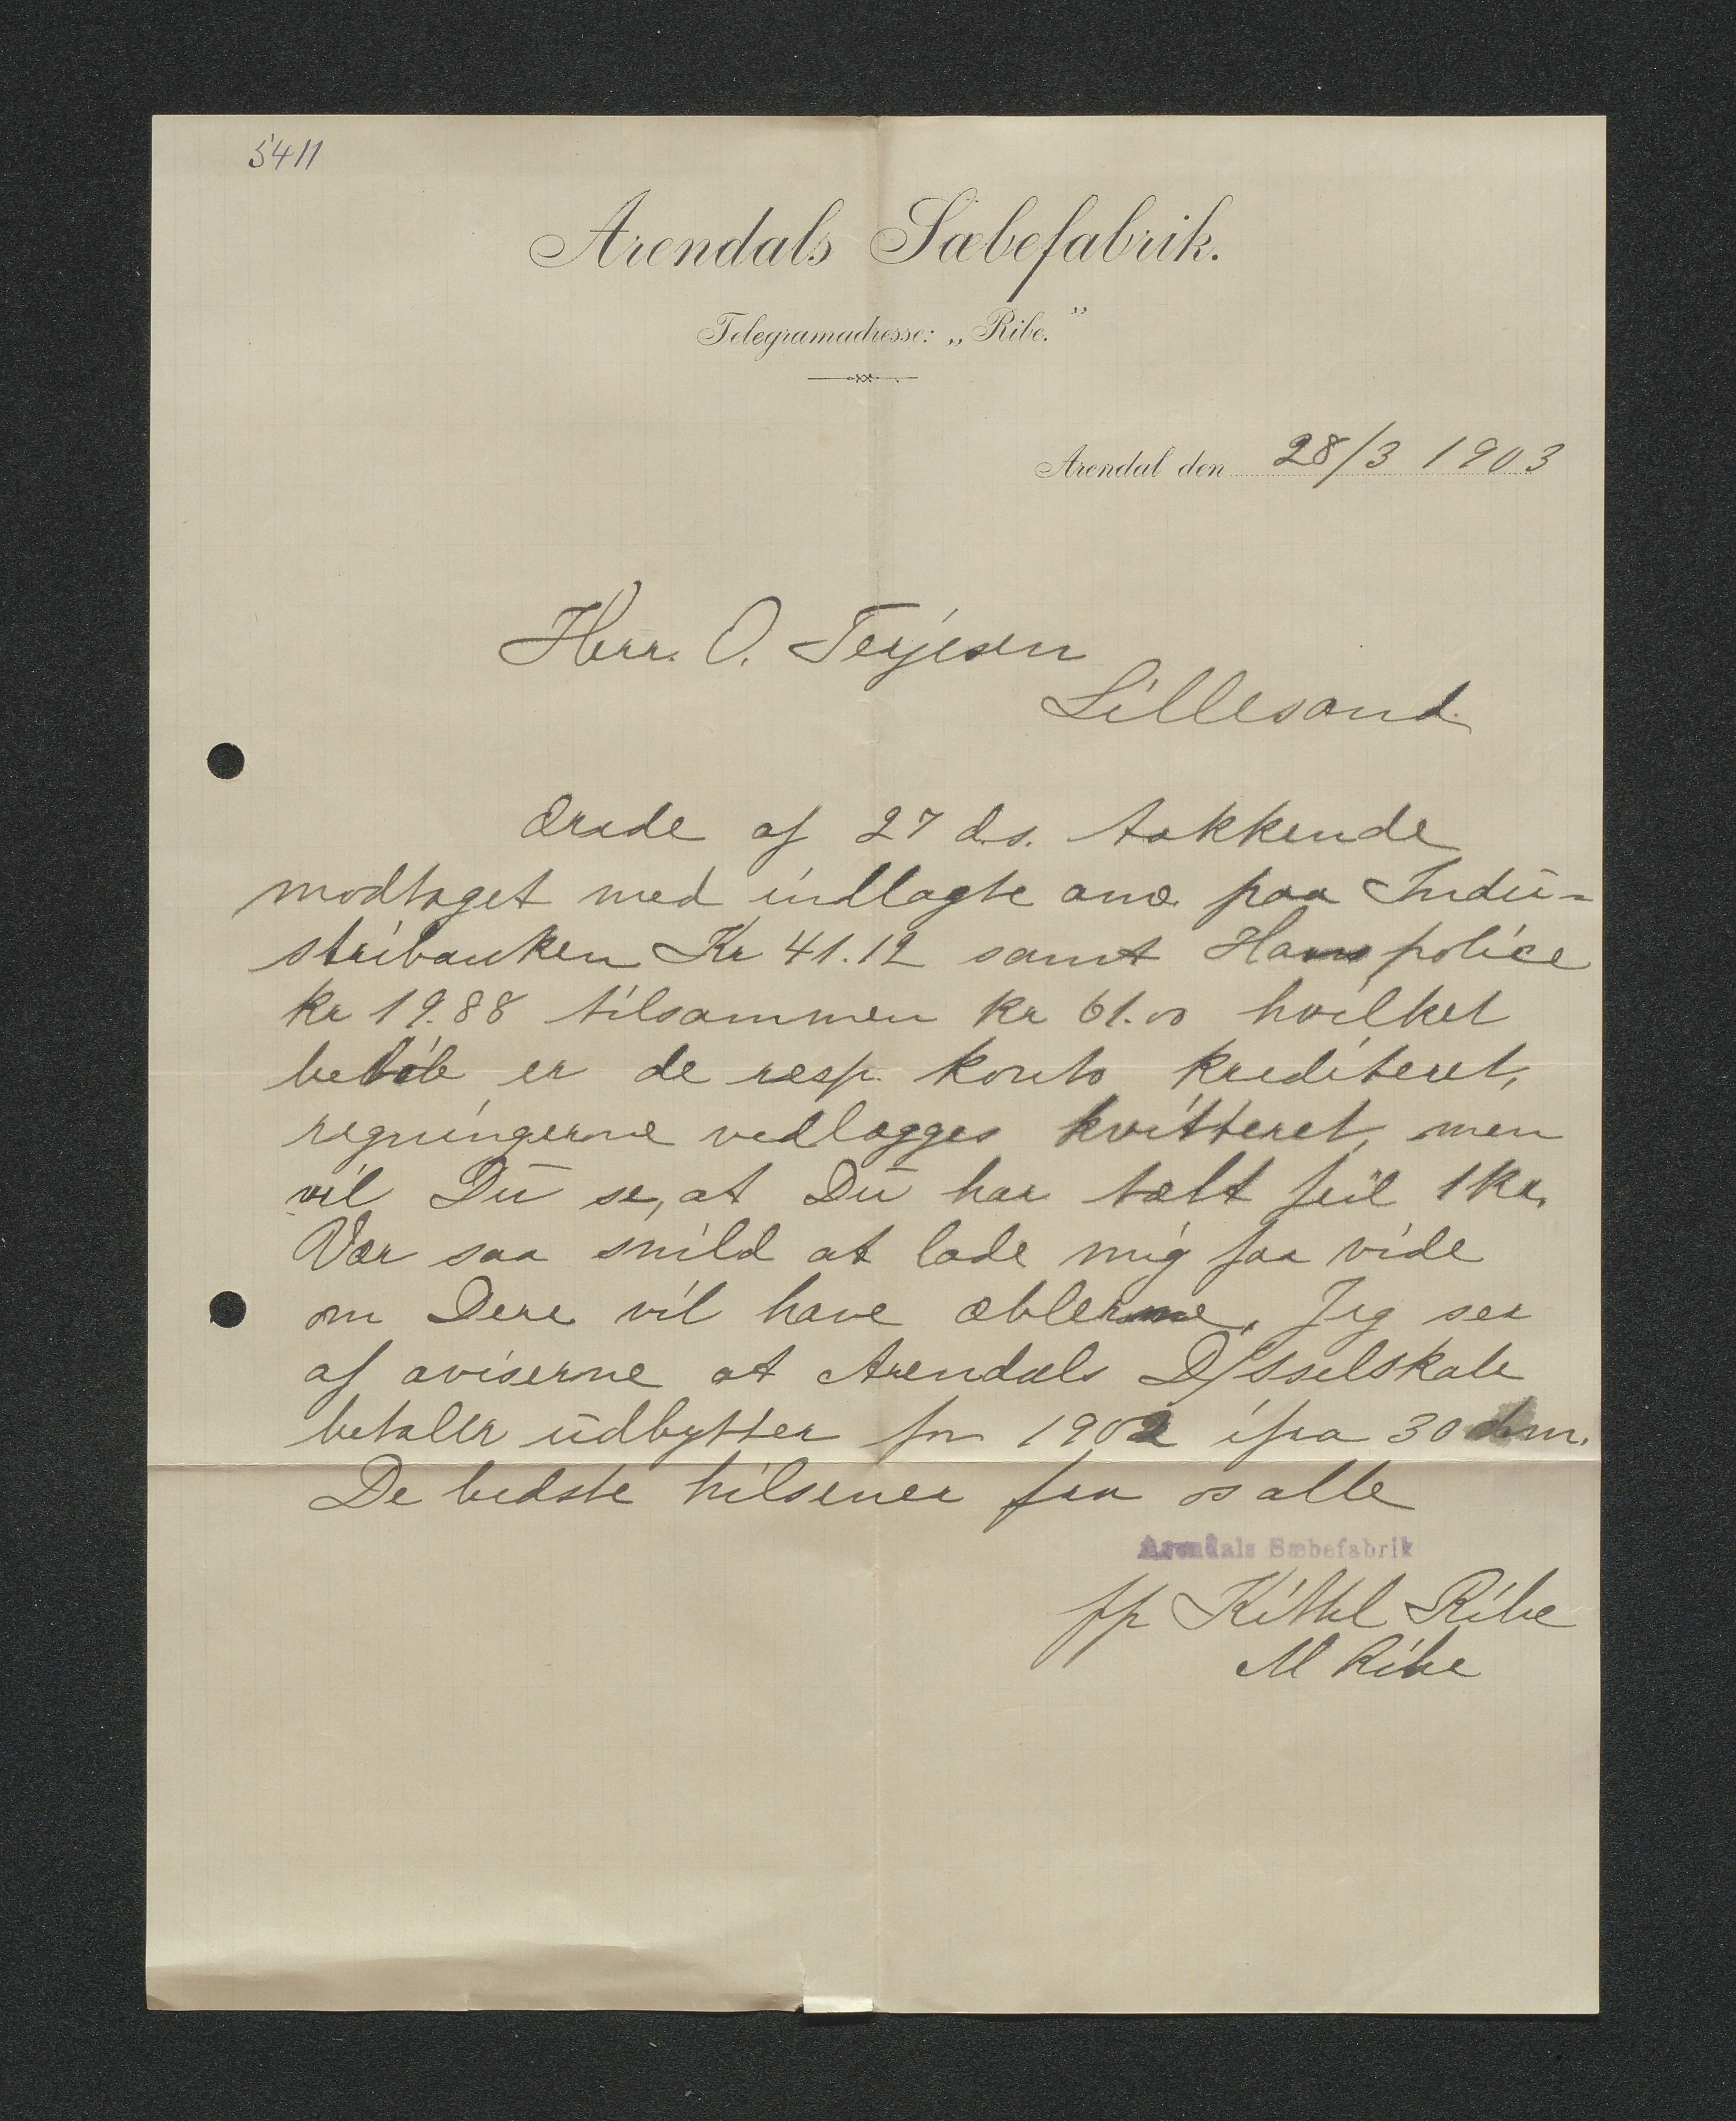 5411
Arendals Sæbefabrik.
Telegramadresse: „Ribe.”
Arendal den 28/3 1903
Herr. O. Terjesen
Lillesand.
Ærede af 27 ds. takkende
modtaget med indlagte anv. paa Indu-
stribanken Kr 41.12 samt Havspolice
kr 19.88 tilsammen kr 61.00 hvilket
beløb er de resp. konto krediteret,
regningerne vedlægges kvitteret, men
vil Du se, at Du har talt feil 1 kr.
Vær saa snild at lade mig faa vide
om Dere vil have æblerne. Jeg ser
af aviserne at Arendals D/Sselskab
betaler udbytter for 1902 ifra 30 dm.
De bedste hilsener fra os alle
Arendals Sæbefabrik
pp Kittel Ribe
M Ribe